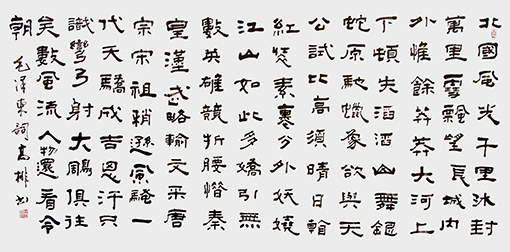 北國風光千里冰封
萬里雪飄望長城內
外惟餘莽莽大河上
下頓失滔滔山舞銀
蛇原馳蠟象欲與天
公試比高須晴日看
紅裝素裹分外妖嬈
江山如此多嬌引無
數英雄競折腰惜秦
皇漢武略輸文采唐
宗宋祖稍遜風騷一
代天驕成吉思汗只
識彎弓射大鵰俱往
矣數風流人物還看今
朝 毛澤東詞